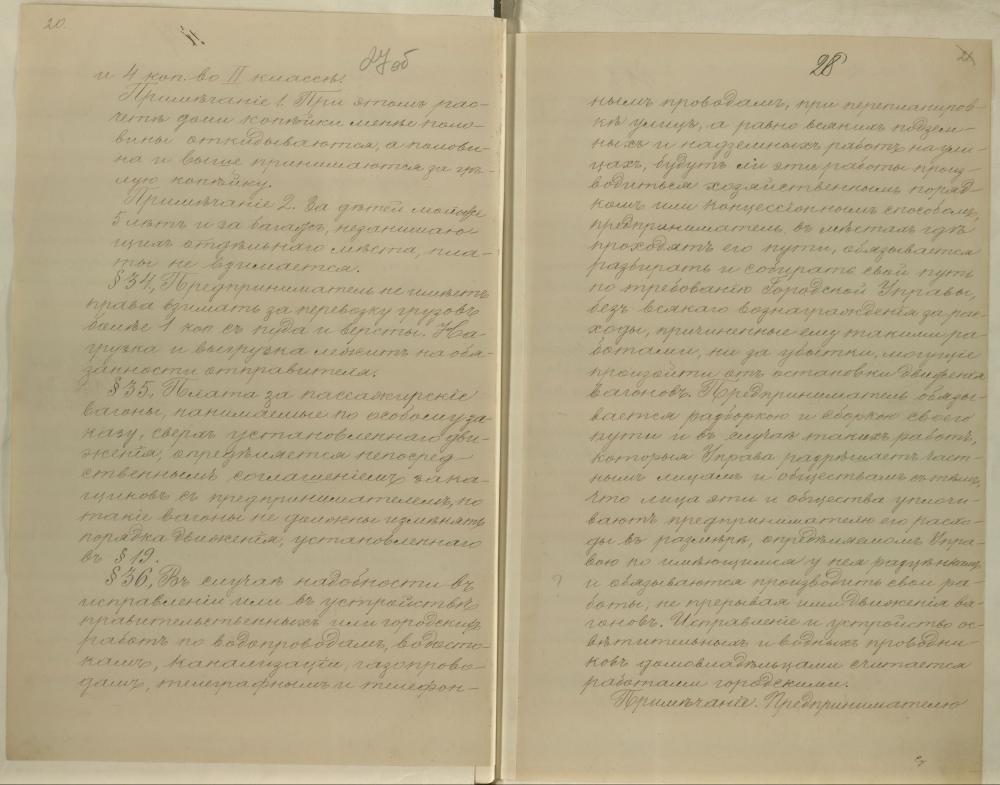 20.
27 об
и 4 коп. во II классѣ.
Примѣчаніе 1. При этомъ рас-
четѣ доли копѣйки менѣе поло-
вины откидываются, а полови-
на и выше принимаются за цѣ-
лую копѣйку.
Примѣчаніе 2. За дѣтей моложе
5 лѣтъ и за багажъ, не занимаю-
щихъ отдѣльнаго мѣста, пла-
ты не взимается.
§ 34, Предприниматель не имѣетъ
права взимать за перевозку грузовъ
болѣе 1 коп съ пуда и версты. На-
грузка и выгрузка лежитъ на обя-
занности отправителя.
§ 35, Плата за пассажирскіе
вагоны, нанимаемые по особому за-
казу, сверхъ установленнаго дви-
женія, опредѣляется непосред-
ственнымъ соглашеніемъ зака-
щиковъ съ предпринимателемъ, но
такіе вагоны не должны измѣнять
порядка движенія, установленнаго
въ § 19.
§ 36, Въ случаѣ надобности въ
исправленіи или въ устройствѣ
правительственныхъ или городскихъ
работъ по водопроводамъ, водосто-
камъ, канализаціи, газопрово-
дамъ, телеграфнымъ и телефон-
28
21
нымъ проводамъ, при перепланиров-
кѣ улицъ, а равно всякихъ подзем-
ныхъ и надземныхъ работъ на ули-
цахъ, будутъ ли эти работы произ-
водиться хозяйственнымъ поряд-
комъ или концессіоннымъ способомъ,
предприниматель, въ мѣстахъ гдѣ
проходятъ его пути, обязывается
разбирать и собирать свой путь
по требованію Городской Управы,
безъ всякаго вознагражденія за рас-
ходы, причиненные ему такими ра-
ботами, ни за убытки, могущіе
произойти отъ остановки движенія
вагоновъ. Предприниматель обязы-
вается разборкою и сборкою своего
пути и въ случаѣ такихъ работъ,
которыя Управа разрѣшаетъ част-
нымъ лицамъ и обществамъ съ тѣмъ,
что лица эти и общества уплачи-
ваютъ предпринимателю его расхо-
ды въ размѣрѣ, опредѣляемомъ Упра-
вою по имѣющимся у нея расцѣнкамъ,
и обязываются производить свои ра-
боты, не прерывая ими движенія ва-
гоновъ. Исправленіе и устройство ос-
вѣтительныхъ и водныхъ проводни-
ковъ домовладѣльцами считается
работами городскими.
Примѣчаніе. Предпринимателю